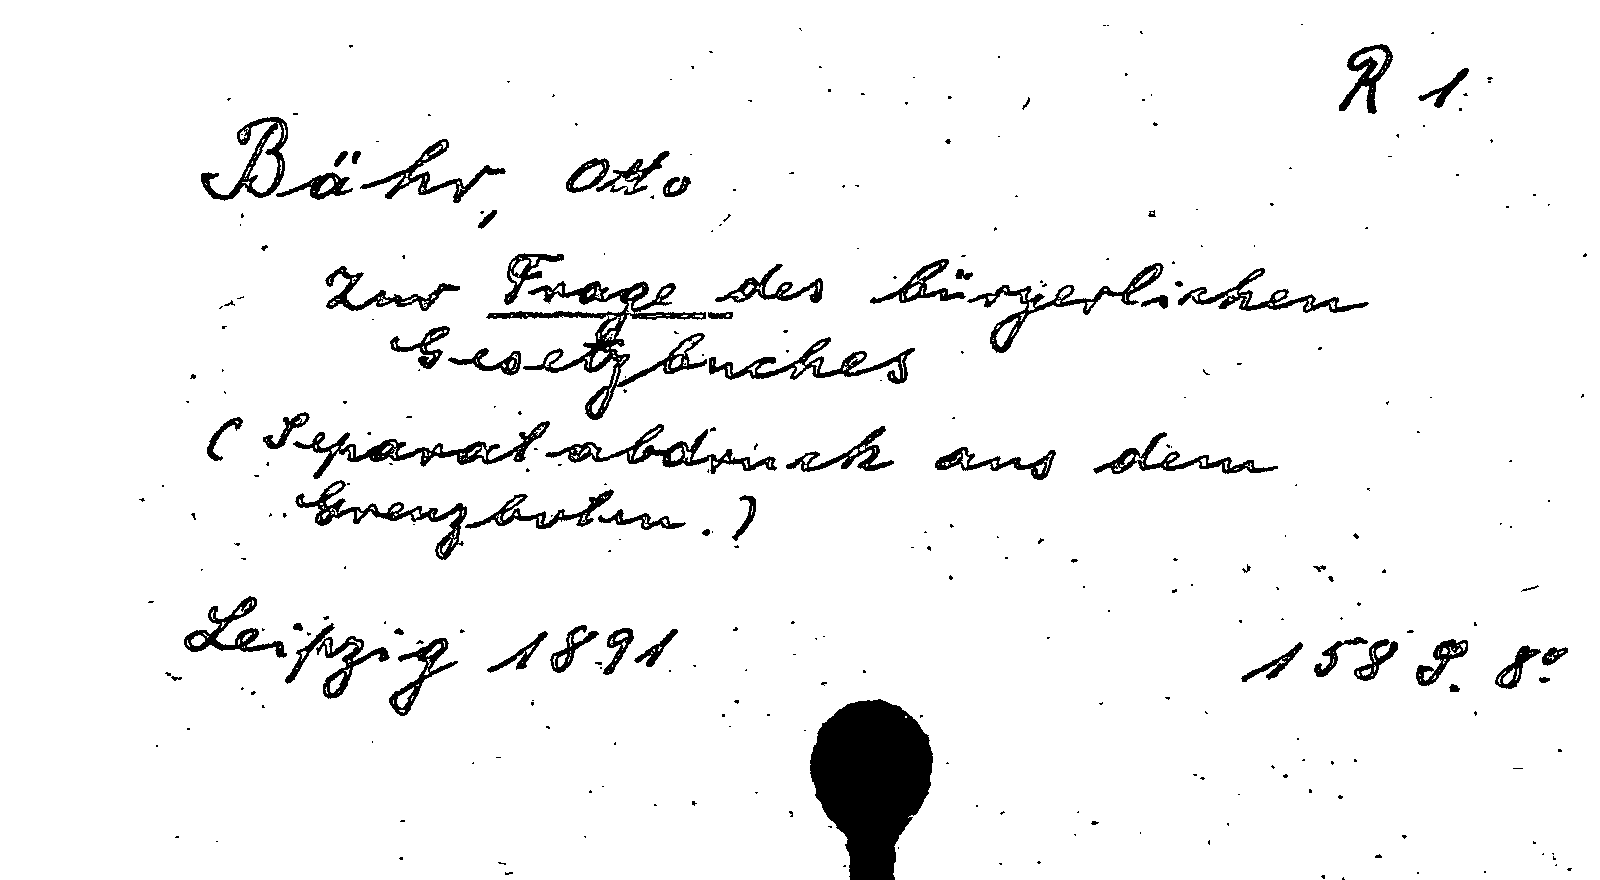 R 1
Bähr, Otto
Zur Frage des bürgerlichen
Gesetzbuches
(Separatabdruck aus dem
Grenzboten.)
Leipzig 1891
158 S. 8°.